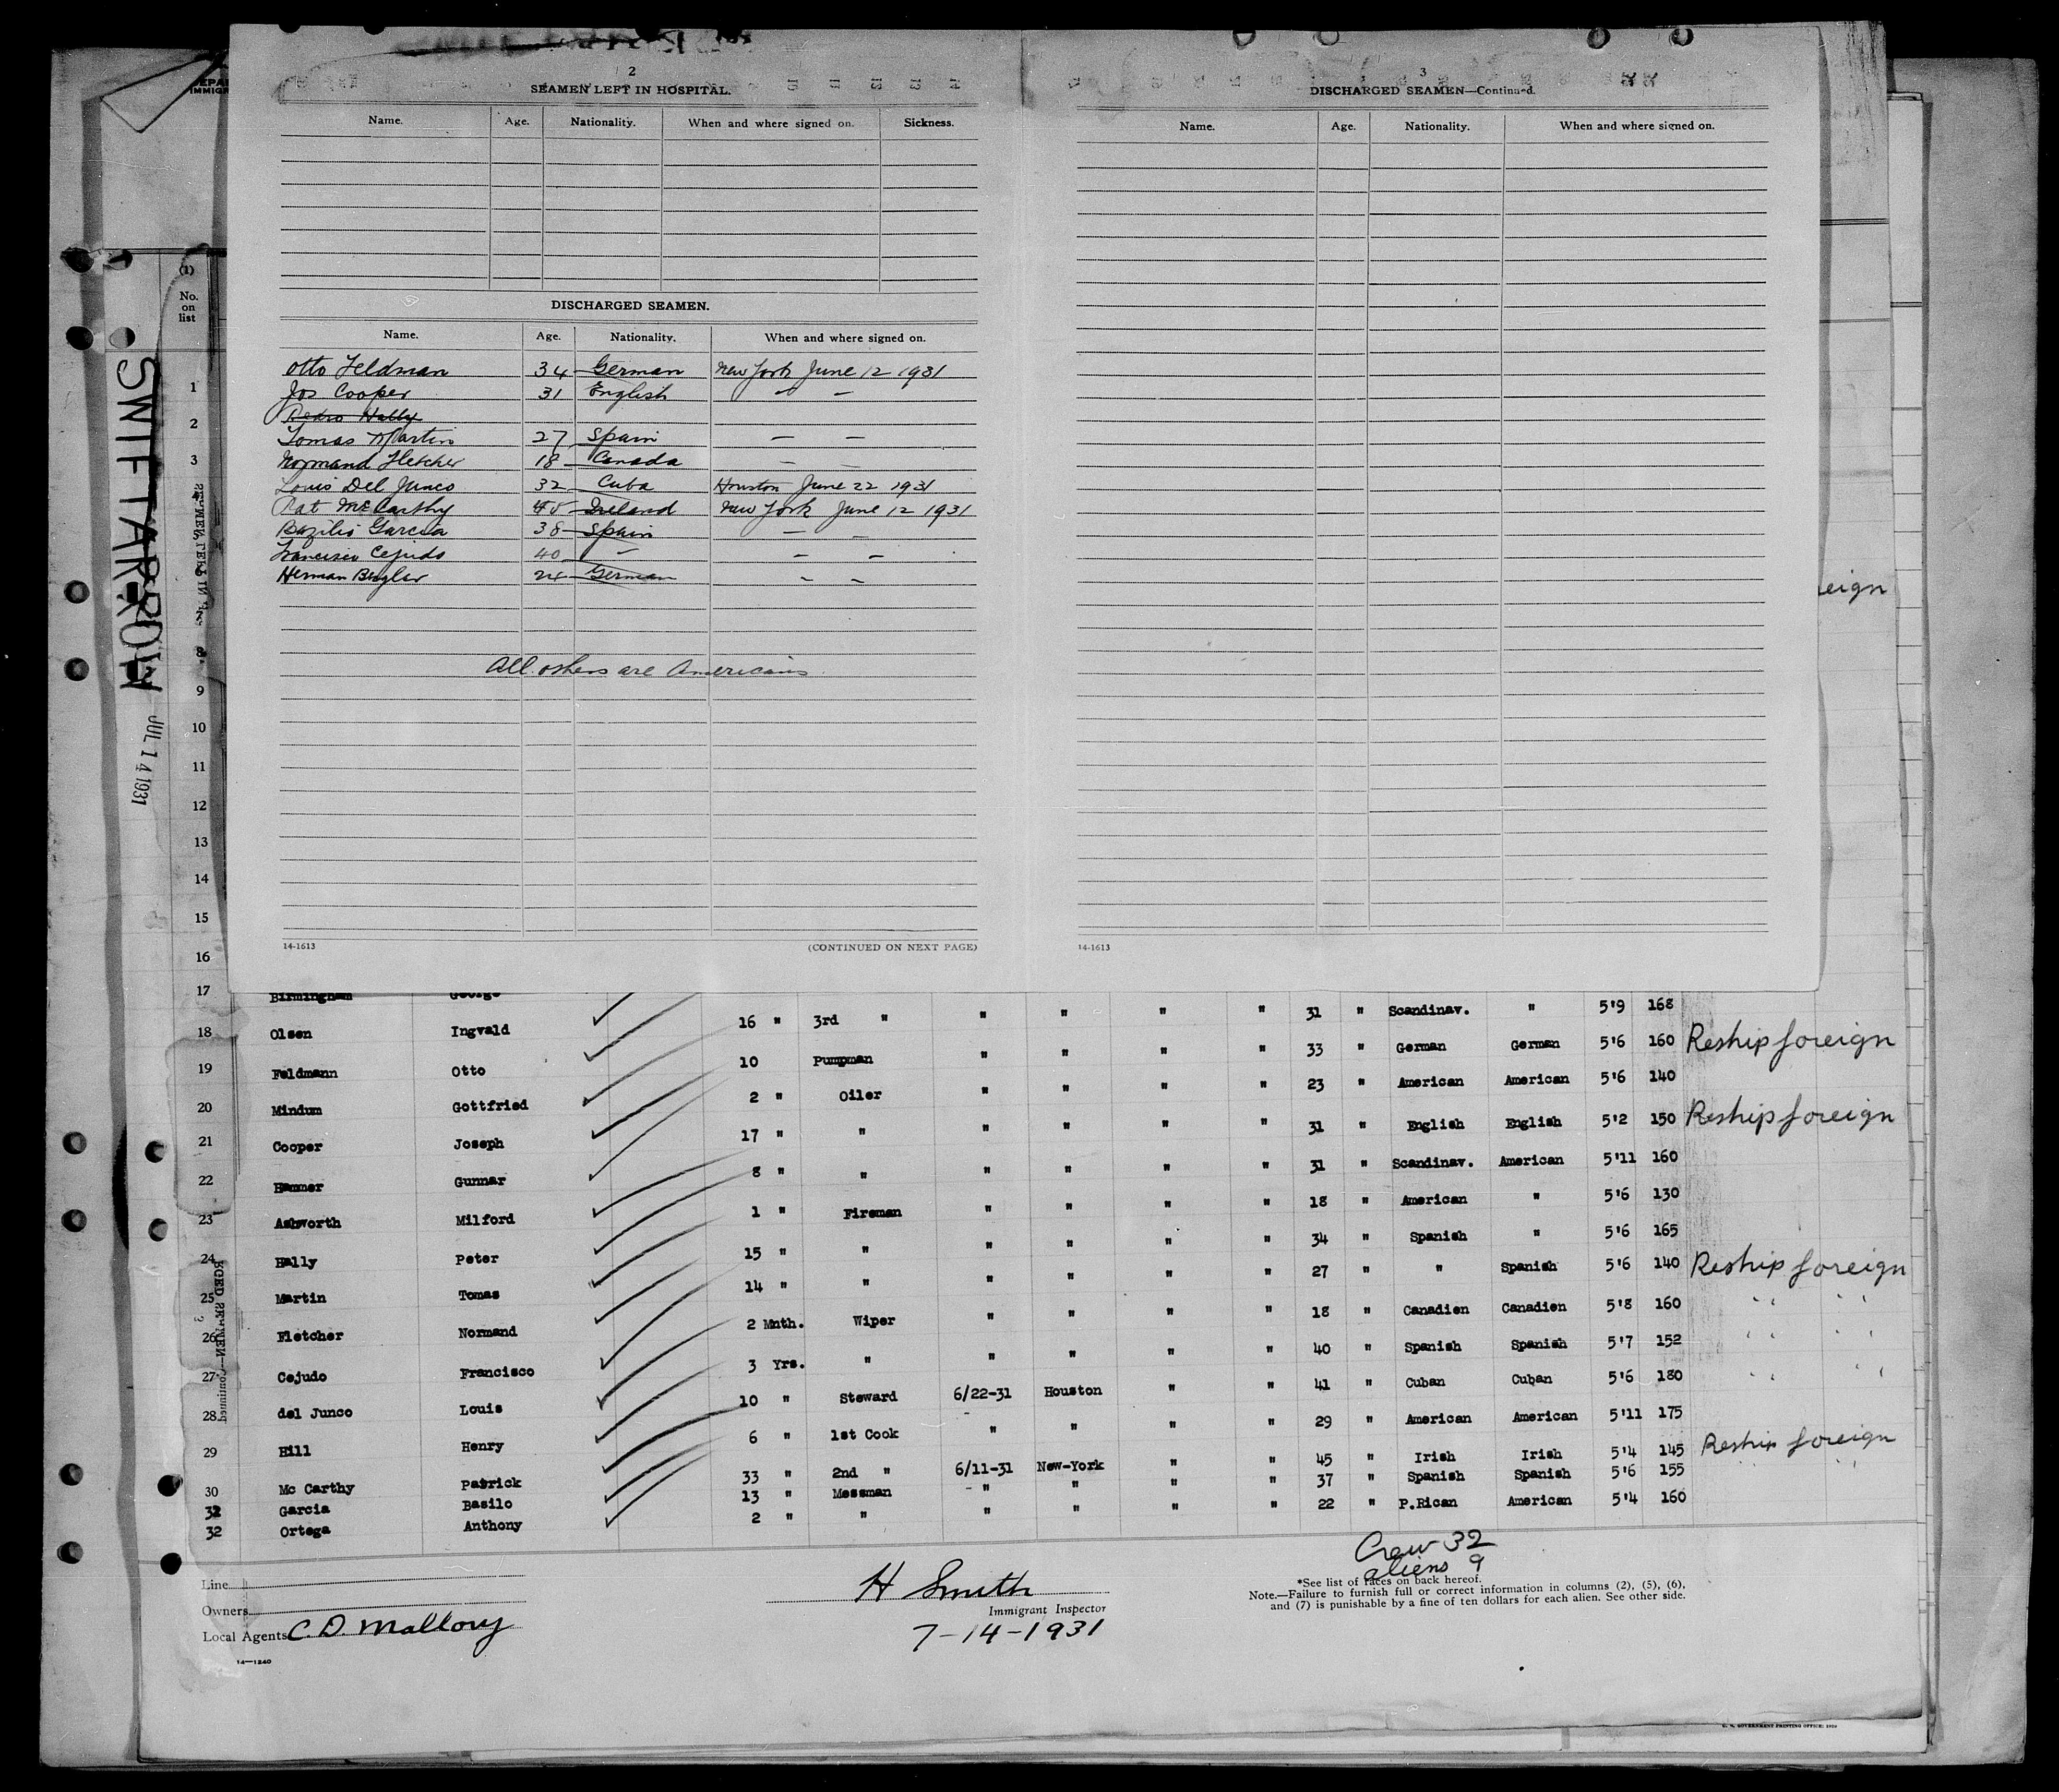 2
SEAMEN LEFT IN HOSPITAL.
Name. Age. Nationality. When and where signed on. Sickness.
DISCHARGED SEAMEN.
Name. Age. Nationality. When and where signed on.
Otto Feldman 34 German New York June 12 1931
Jos Cooper 31 English — —
Pedro Hally
Tomas Martin 27 Spain — —
Normand Fletcher 18 Canada — —
Louis Del Junco 32 Cuba Houston June 22 1931
Pat McCarthy 45 Ireland New York June 12 1931
Bazilio Garcia 38 Spain — —
Francisco Cejudo 40 — — —
Herman 24 German — —
All others are Americans
14-1613 (CONTINUED ON NEXT PAGE)
3
DISCHARGED SEAMEN—Continued.
Name. Age. Nationality. When and where signed on.
14-1613
(1)
No. on list
SWIFTARROW JUL 14 1931
eign
1
2
3
8
9
10
11
12
13
14
15
16
17 Birmingham George
18 Olsen Ingvald 16 " 3rd " " " " " 31 " Scandinav. " 5'9 168
19 Feldmann Otto 10 Pumpman " " " " 33 " German German 5'6 160 Reship foreign
20 Mindum Gottfried 2 " Oiler " " " " 23 " American American 5'6 140
21 Cooper Joseph 17 " " " " " " 31 " English English 5'2 150 Reship foreign
22 Hammer Gunnar 8 " " " " " " 31 " Scandinav. American 5'11 160
23 Ashworth Milford 1 " Fireman " " " " 18 " American " 5'6 130
24 Hally Peter 15 " " " " " " 34 " Spanish " 5'6 165
25 Martin Tomas 14 " " " " " " 27 " " Spanish 5'6 140 Reship foreign
26 Fletcher Normand 2 Mnth. Wiper " " " " 18 " Canadien Canadien 5'8 160 " "
27 Cejudo Francisco 3 Yrs. " " " " " 40 " Spanish Spanish 5'7 152 " "
28 del Junco Louis 10 " Steward 6/22-31 Houston " " 41 " Cuban Cuban 5'6 180 " "
29 Hill Henry 6 " 1st Cook " " " " 29 " American American 5'11 175
30 Mc Carthy Patrick 33 " 2nd " 6/11-31 New-York " " 45 " Irish Irish 5'4 145 Reship foreign
32 Garcia Basilo 13 " Messman " " " " 37 " Spanish Spanish 5'6 155 " "
32 Ortega Anthony 2 " " " " " " 22 " P.Rican American 5'4 160
Crew 32
aliens 9
Line
Owners
Local Agents C. D. Mallory
14—1240
H Smith
Immigrant Inspector
7-14-1931
*See list of races on back hereof.
Note.—Failure to furnish full or correct information in columns (2), (5), (6),
and (7) is punishable by a fine of ten dollars for each alien. See other side.
U. S. GOVERNMENT PRINTING OFFICE: 1930